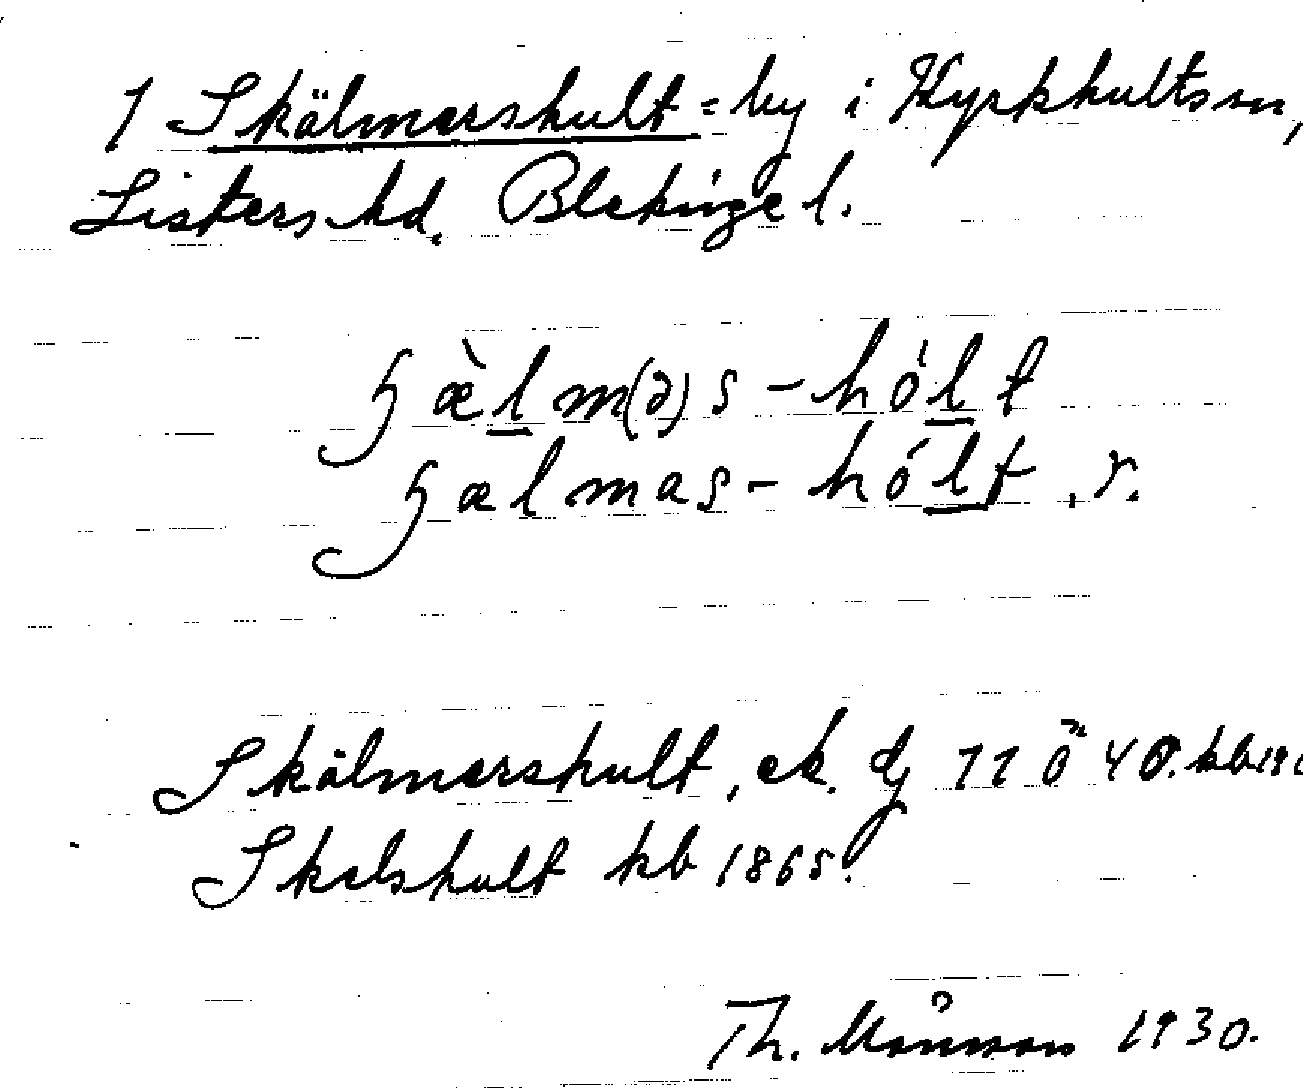 1 Skälmershult = by i Kyrkhults sn,
Listers hd. Blekinge l.
ɧæ̀lm(ə)s-hólt
ɧælmas-hólt, r.
Skälmershult, ek. dj 11 ö 40. kb 19
Skelshult kb 1865.
Th. Månsson 1930.